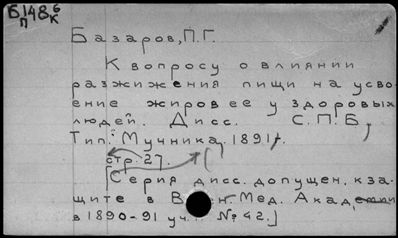 Б148 6
П К
Базаров, П.Г.
К вопросу о влиянии
разжижения пищи на усво-
ение жиров ее у здоровых
людей. Дисс. С.П.Б.,
Тип. Мучника, 1891г.
стр. 27.
[Серия дисс. допущен. к за-
щите в Воен. Мед. Академии
в 1890-91 уч. г. № 42.]